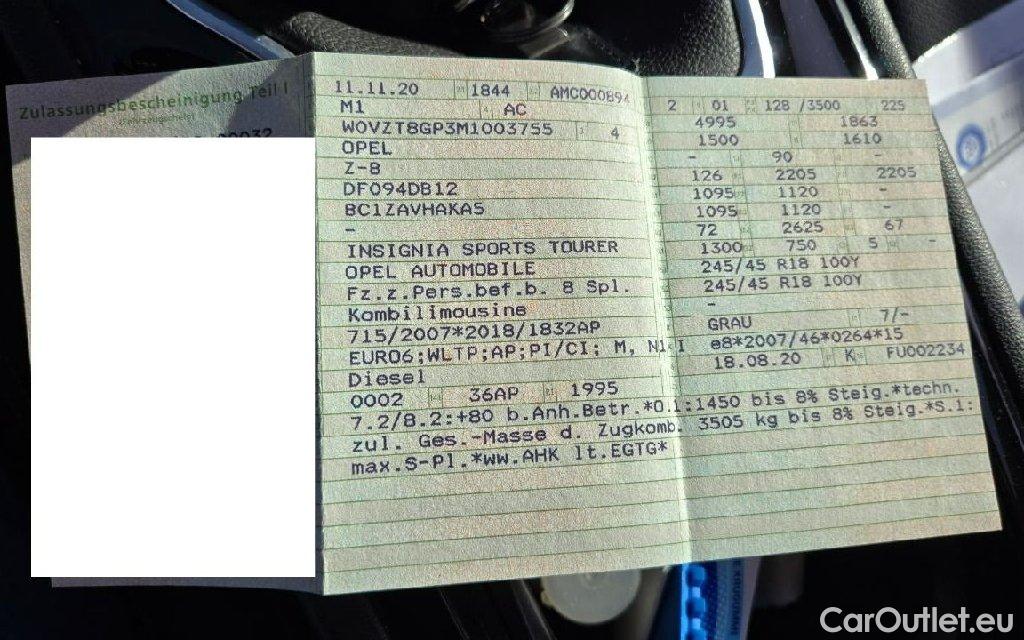 Zulassungsbescheinigung Teil I
11.11.20 1844 AMC000894
M1 4 AC
W0VZT8GP3M1003755 4
OPEL
Z-B
DF094DB12
BC1ZAVHAKA5
-
INSIGNIA SPORTS TOURER
OPEL AUTOMOBILE
Fz.z.Pers.bef.b. 8 Spl.
Kombilimousine
715/2007*2018/1832AP
EURO6;WLTP;AP;PI/CI; M, N1 I
Diesel
0002 36AP 1995
7.2/8.2:+80 b.Anh.Betr.*O.1:1450 bis 8% Steig.*techn.
zul. Ges.-Masse d. Zugkomb. 3505 kg bis 8% Steig.*S.1:
max.S-Pl.*ww.AHK lt.EGTG*
2 01 128 /3500 225
4995 1863
1500 1610
- 90 -
126 2205 2205
1095 1120 -
1095 1120 -
72 2625 67
1300 750 5 -
245/45 R18 100Y
245/45 R18 100Y
-
GRAU 7/-
e8*2007/46*0264*15
18.08.20 K FU002234
CarOutlet.eu